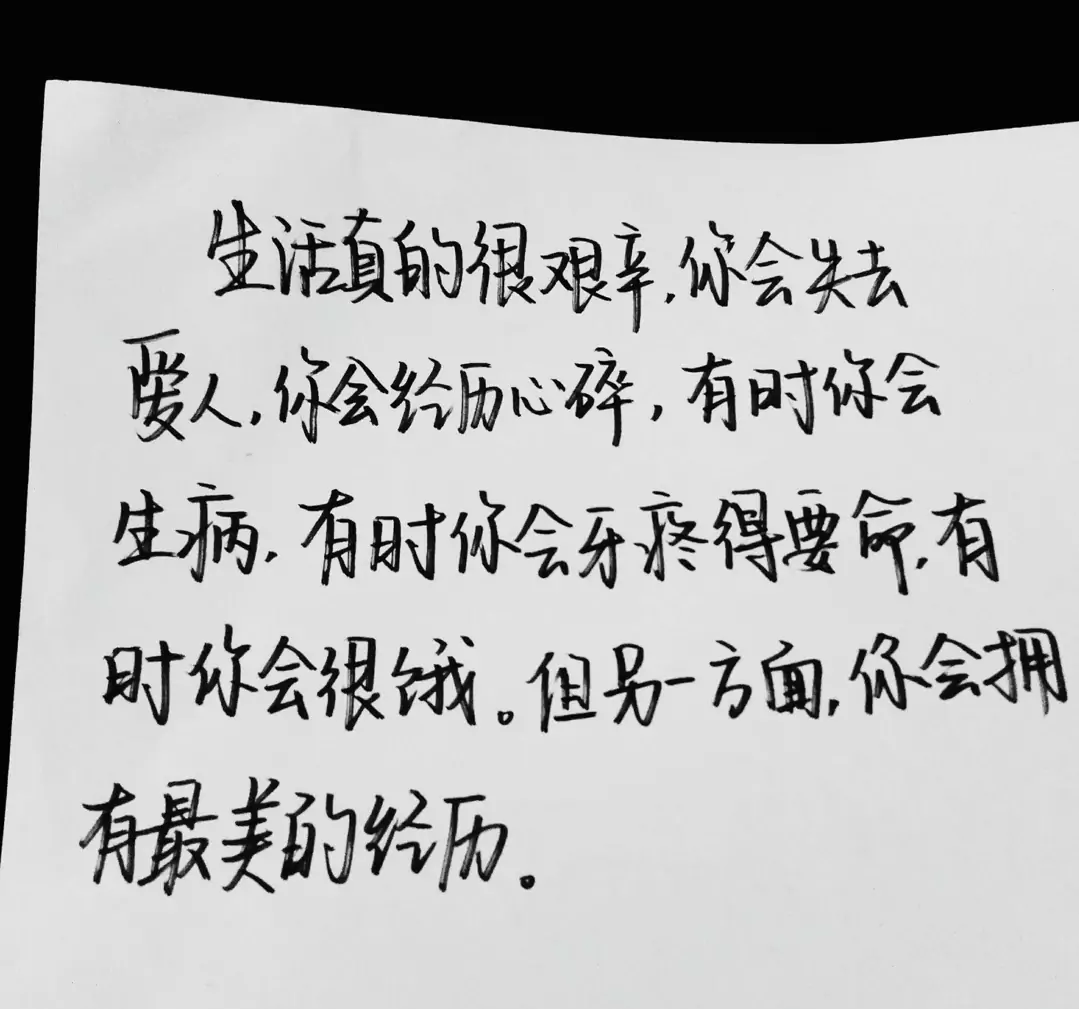 生活真的很艰辛,你会失去
爱人,你会经历心碎,有时你会
生病,有时你会牙疼得要命,有
时你会很饿。但另一方面,你会拥
有最美的经历。